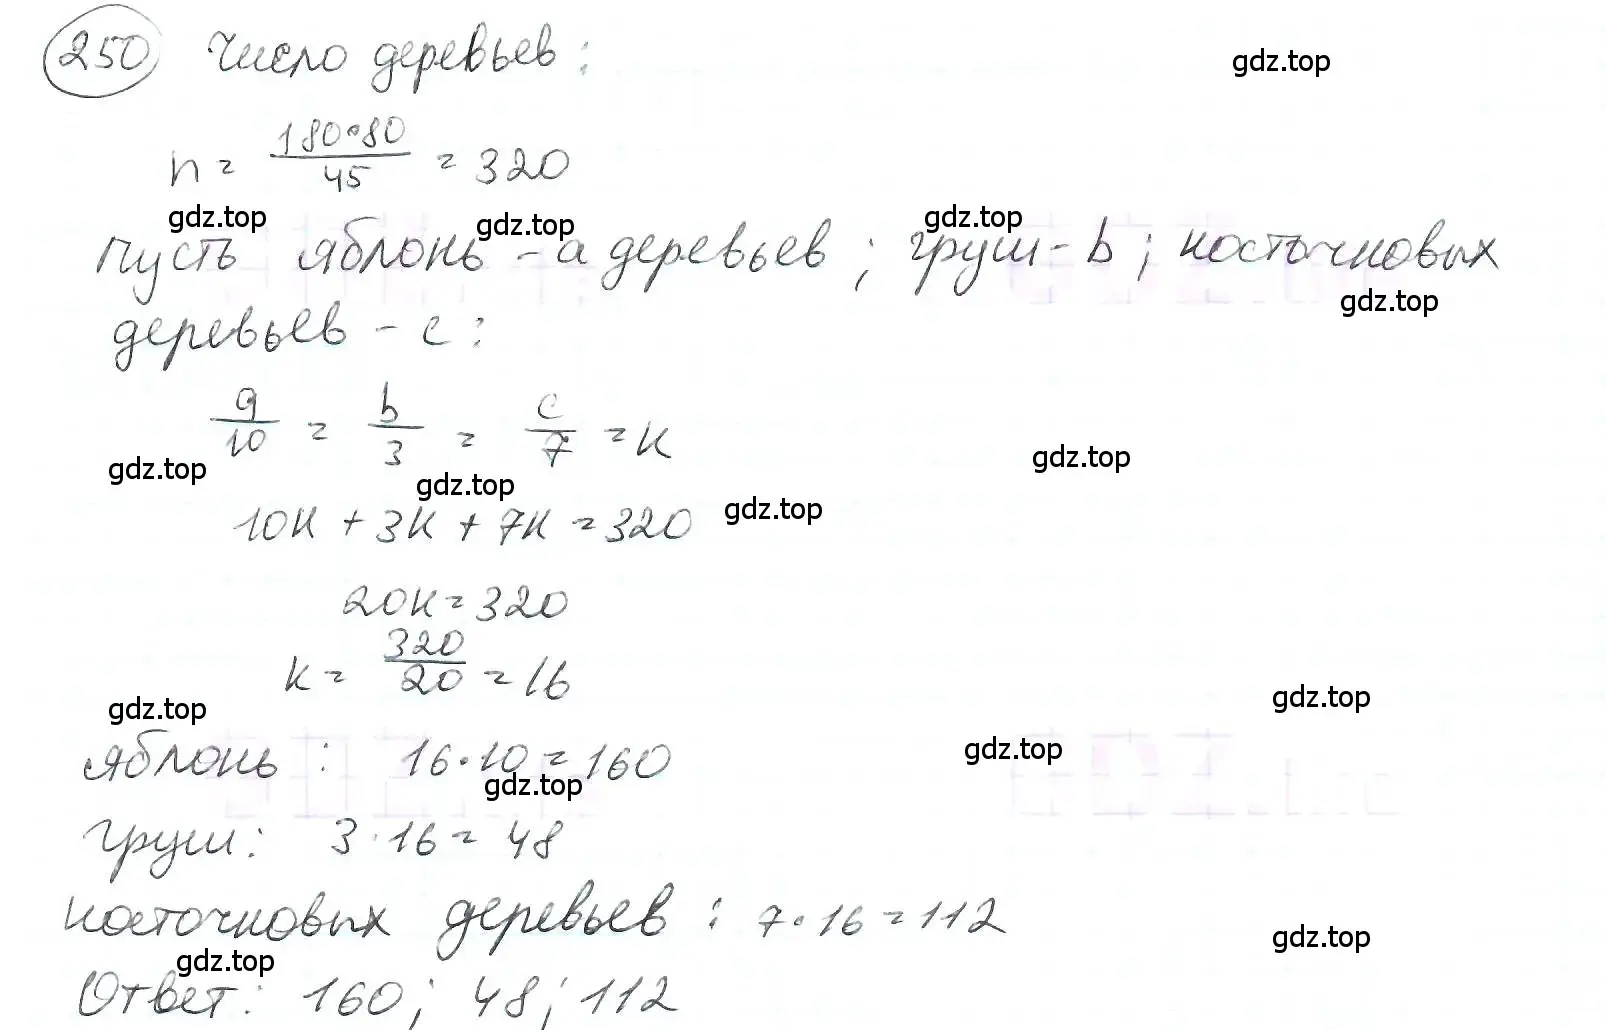 250 Число деревьев:
gdz.top
n = 180•80/45 = 320
gdz.top gdz.top gdz.top
пусть яблонь - а деревьев; груш - b; косточковых
gdz.top
деревьев - с:
a/10 = b/3 = c/7 = k
gdz.top gdz.top gdz.top
10k + 3k + 7k = 320
gdz.top
20k = 320
k = 320/20 = 16
gdz.top gdz.top
яблонь: 16•10 = 160
gdz.top gdz.top
груш: 3•16 = 48
косточковых деревьев: 7•16 = 112
gdz.top gdz.top
Ответ: 160; 48; 112